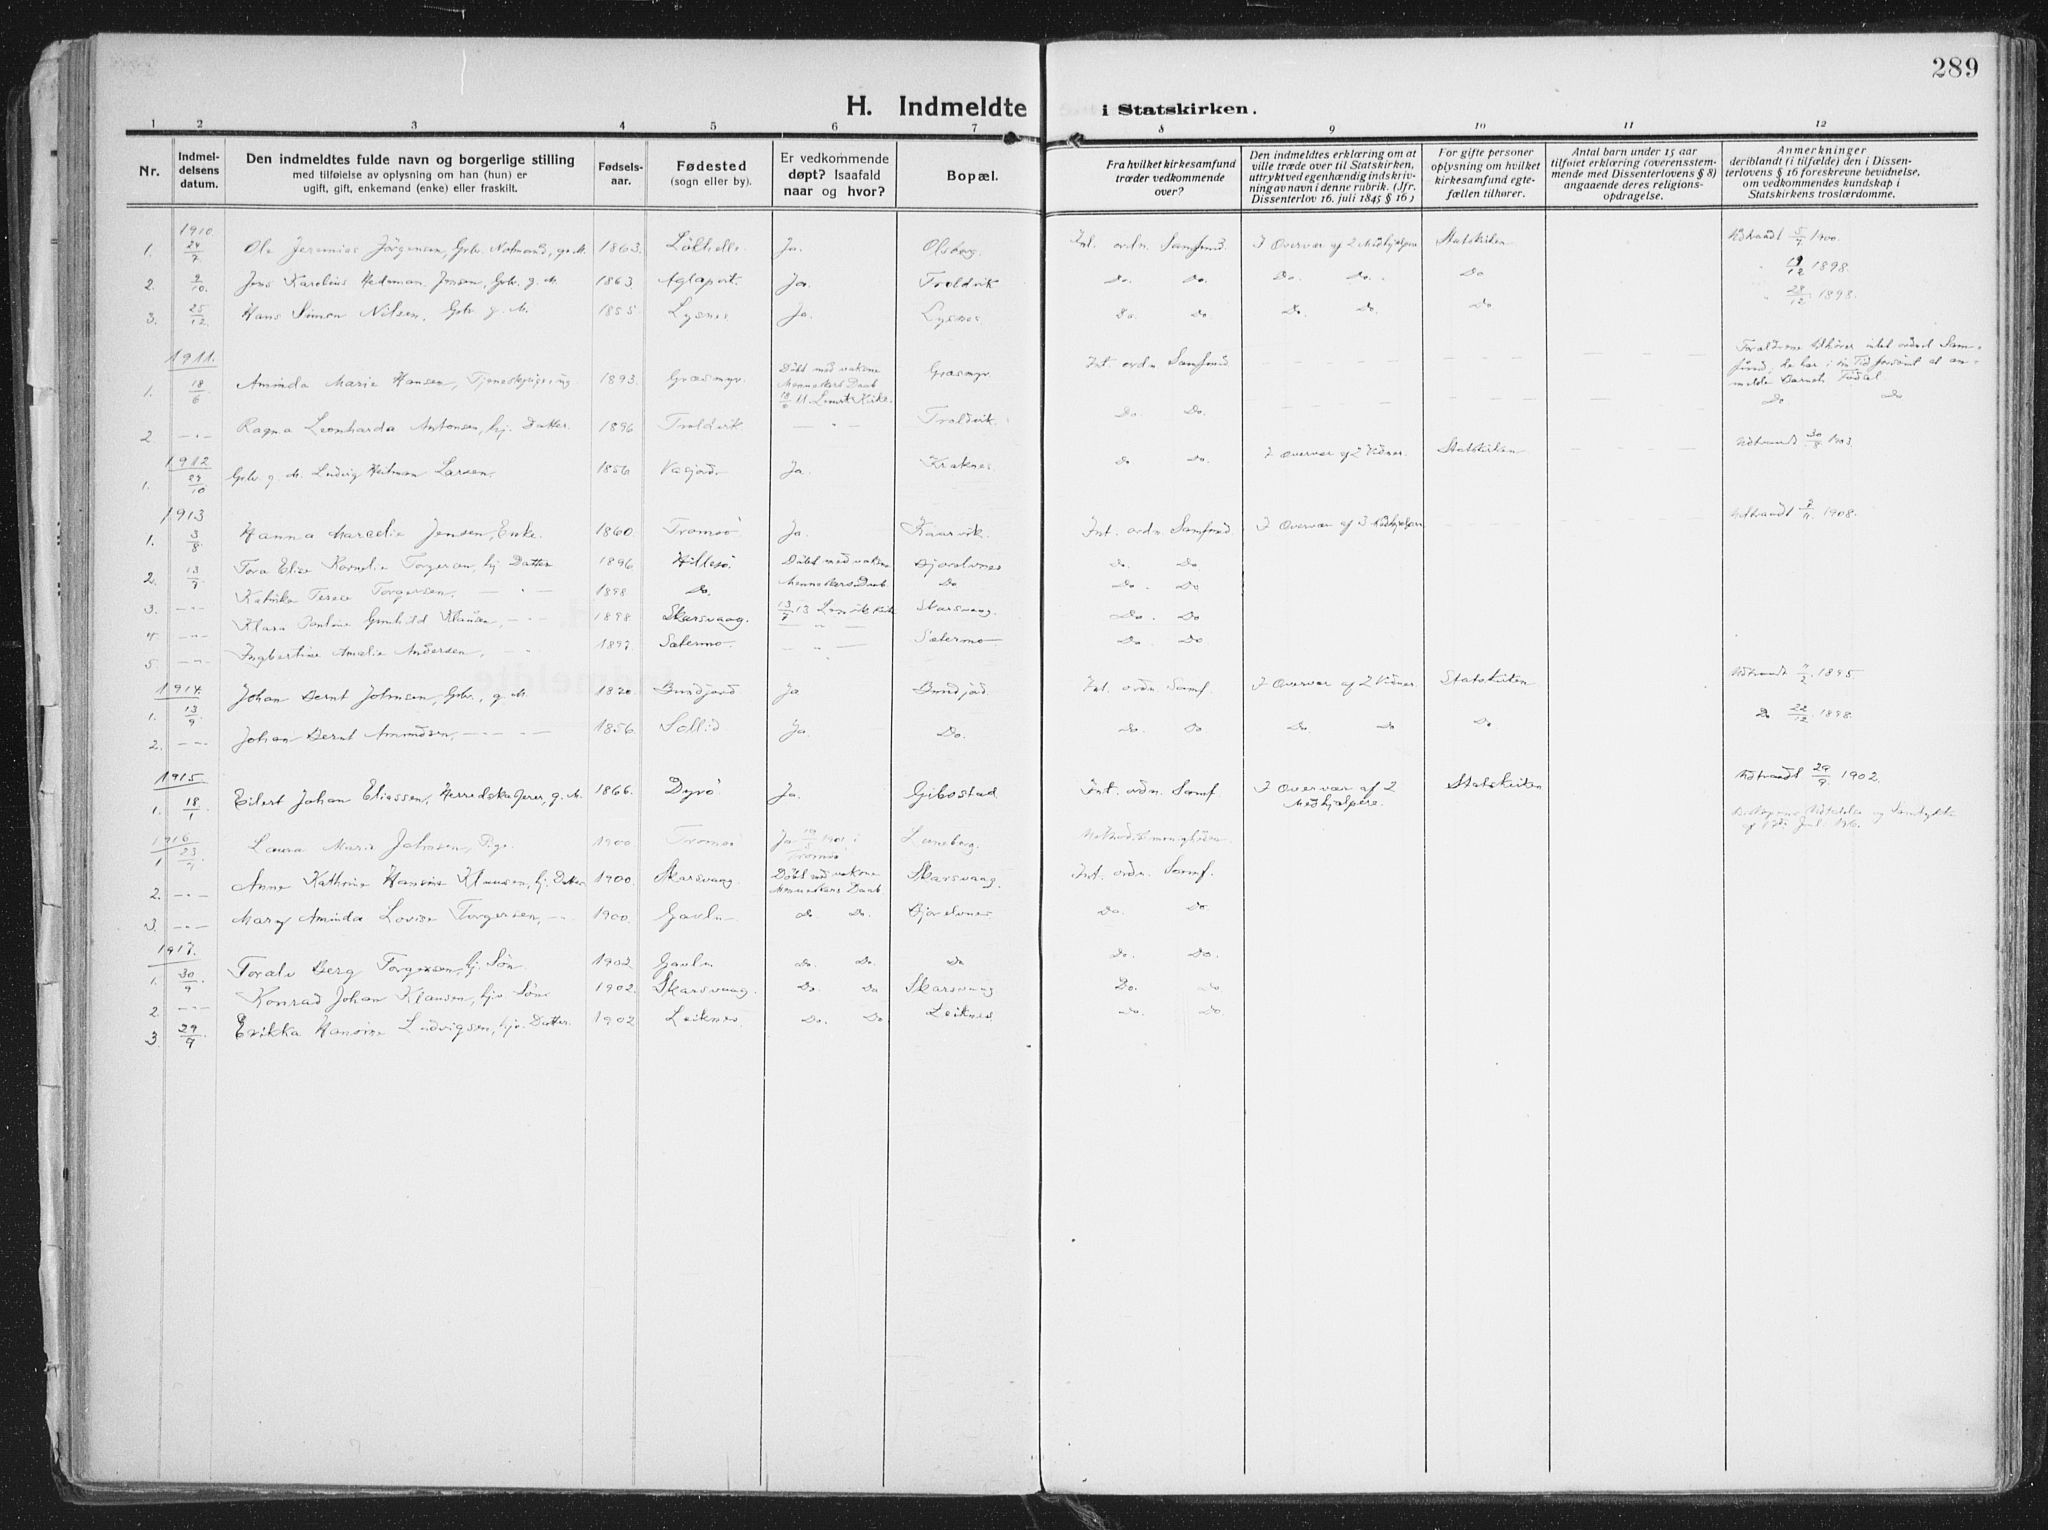 289
H. Indmeldte i Statskirken.
1 2 3 4 5 6 7 8 9 10 11 12
Nr.
Indmel-
delsens
datum.
Den indmeldtes fulde navn og borgerlige stilling
med tilføielse av oplysning om han (hun) er
ugift, gift, enkemand (enke) eller fraskilt.
Fødsels-
aar.
Fødested
(sogn eller by).
Er vedkommende
døpt? Isaafald
naar og hvor?
Bopæl.
Fra hvilket kirkesamfund
træder vedkommende
over?
Den indmeldtes erklæring om at
ville træde over til Statskirken,
uttrykt ved egenhændig indskriv-
ning av navn i denne rubrik. (Jfr.
Dissenterlov 16. juli 1845 § 16)
For gifte personer
oplysning om hvilket
kirkesamfund egte-
fællen tilhører.
Antal barn under 15 aar
tilføiet erklæring (overensstem-
mende med Dissenterlovens § 8)
angaaende deres religions-
opdragelse.
Anmerkninger
deriblandt (i tilfælde) den i Dissen-
terlovens § 16 foreskrevne bevidnelse,
om vedkommendes kundskap i
Statskirkens troslærdomme.
1910.
1. 24/7 Ole Jeremias Jörgensen, Gbr. g. M. 1863. Ja. Olsborg. Int. ordn. Samfund. I Overvær af 2 Medhjelpere Statskirken Udtraadt 5/7 1900.
2. 2/10. Jens Karelius Heitman Jensen, Gbr. g. M. 1863 Aglapvik. Ja. Troldvik Do. Do. Do. Do. Do 19/12 1898.
3. 25/12. Hans Simon Nilsen, Gbr g. M. 1855 Lysnes Ja. Lysnes Do Do Do. Do. Do 28/12. 1898.
1911.
1. 18/6 Aminda Marie Hansen, Tjenestepige, ug. 1893. Græsmyr. Döbt med voksne Menneskers Daab 18/6 11. Lenvik Kirke. Græsmyr Int. ordn. Samfund Forældrene tilhörer intet ordnet Sam-
fund, de har i sin Tid forsömt at an-
melde Barnets Födsel.
2 -"- Ragna Leonharda Antonsen, hj. Datter. 1896 Troldvik - " - Troldvik. Do. Do. Do. Do
1912
1. 27/10 Gbr. g. M. Ludvig Heitman Larsen. 1856 Ja. Kraknes. Do Do. I Overvær af 2 Vidner. Statskirken Udtraadt 30/8 1903.
1913
1. 3/8 Hanna Marcelie Jensen, Enke. 1860. Tromsö Ja. Kaarvik. Int. ordn. Samfund. I Overvær af 3 Medhjelpere Udtraadt 1908.
2. 13/7 Tora Elise Kornelie Torgersen, hj Datter 1896 Hillesö. Döbt med voksne Menneskers Daab 13/7 13 Lenvik Kirke Bjorelvnes Do. Do
3. -"- Terese Torgersen. - " - 1898 Do. Do Do. Do
4. -"- Klara Gunhild Klausen, - " - 1898 Skarsvaag. - " - Skarsvaag. Do. Do
5. -"- Ingbertine Amalie Andersen, " 1897. Sætermo - " - Sætermo Do Do
1914.
1. 13/9. Johan Bernt Johnsen, Gbr., g. M. Bundjord. Ja Bundjord Int. ordn. Samf. I Overvær af 2 Vidner. Statskirken Udtraadt 1895
2. -"- Johan Bernt Amundsen. 1856. Sollid Ja. Do. Do. Do Do Do Do Do 22/12. 1898.
1915.
1. 18/1 Eilert Johan Eliassen, Herredskasserer, g. M. 1866. Dyrö Ja. Gibostad Int. ordn. Samf. I Overvær af 2 Medhjælpere. Statskirken Udtraadt 29/9. 1902.
1916
1 23/7 Laura Marie Johnsen, Pige. 1900 Tromsö Ja 1901 i Tromsö Leneberg. Methodistmenigheden
2. -"- Anne Kathrine Hansine Klausen, hj. Datter 1900. Skarsvaag. Döbt ved voksne Menneskers Daab Skarsvaag. Int. ordn. Samf.
3. -"- Mary Aminda Lovise Torgersen, -"- 1900. Gavln Do Do. Bjorelvnes Do. Do.
1917.
1. 30/9 Toralv Berg Torgersen, hj. Sön. 1902. Gavln Do. Do. Do Do. Do.
2 -"- Konrad Johan Klausen, hjv. Sön. 1902. Skarsvaag. Do. Do Skarsvaag Do. Do
3. 29/9 Erikka Hansine Ludvigsen, hjv. Datter. 1902 Leiknes. Do. Do Leiknes. Do. Do